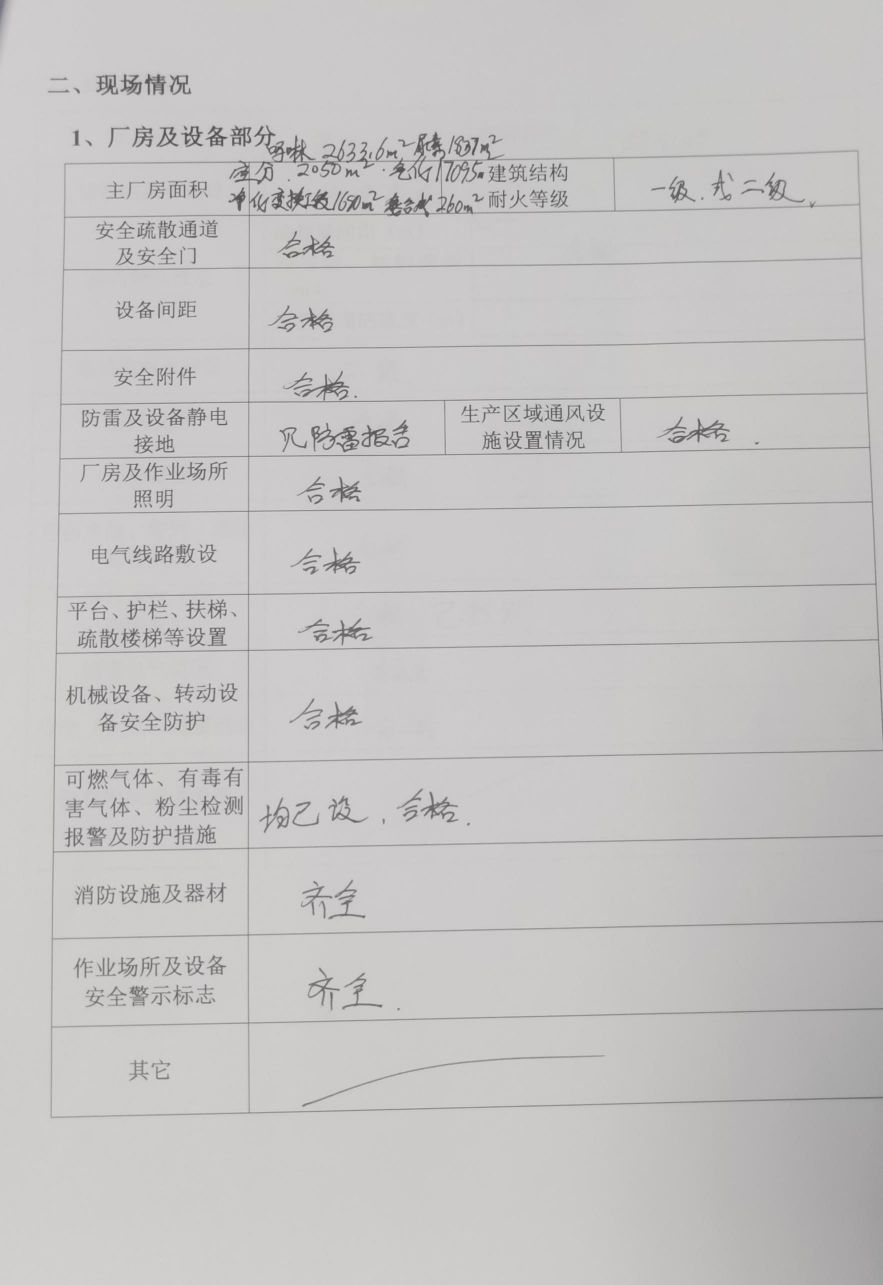 二、现场情况
1、厂房及设备部分
2633.6m² 尿素1837m²
空分.2050m².气化17095m
主厂房面积 净化变换工段1650m² 260m² 建筑结构耐火等级 一级.或二级
安全疏散通道
及安全门 合格
设备间距 合格
安全附件 合格.
防雷及设备静电
接地 见防雷报告 生产区域通风设
施设置情况 合格.
厂房及作业场所
照明 合格
电气线路敷设 合格
平台、护栏、扶梯、
疏散楼梯等设置 合格
机械设备、转动设
备安全防护 合格
可燃气体、有毒有
害气体、粉尘检测
报警及防护措施 均已设,合格.
消防设施及器材 齐全
作业场所及设备
安全警示标志 齐全.
其它